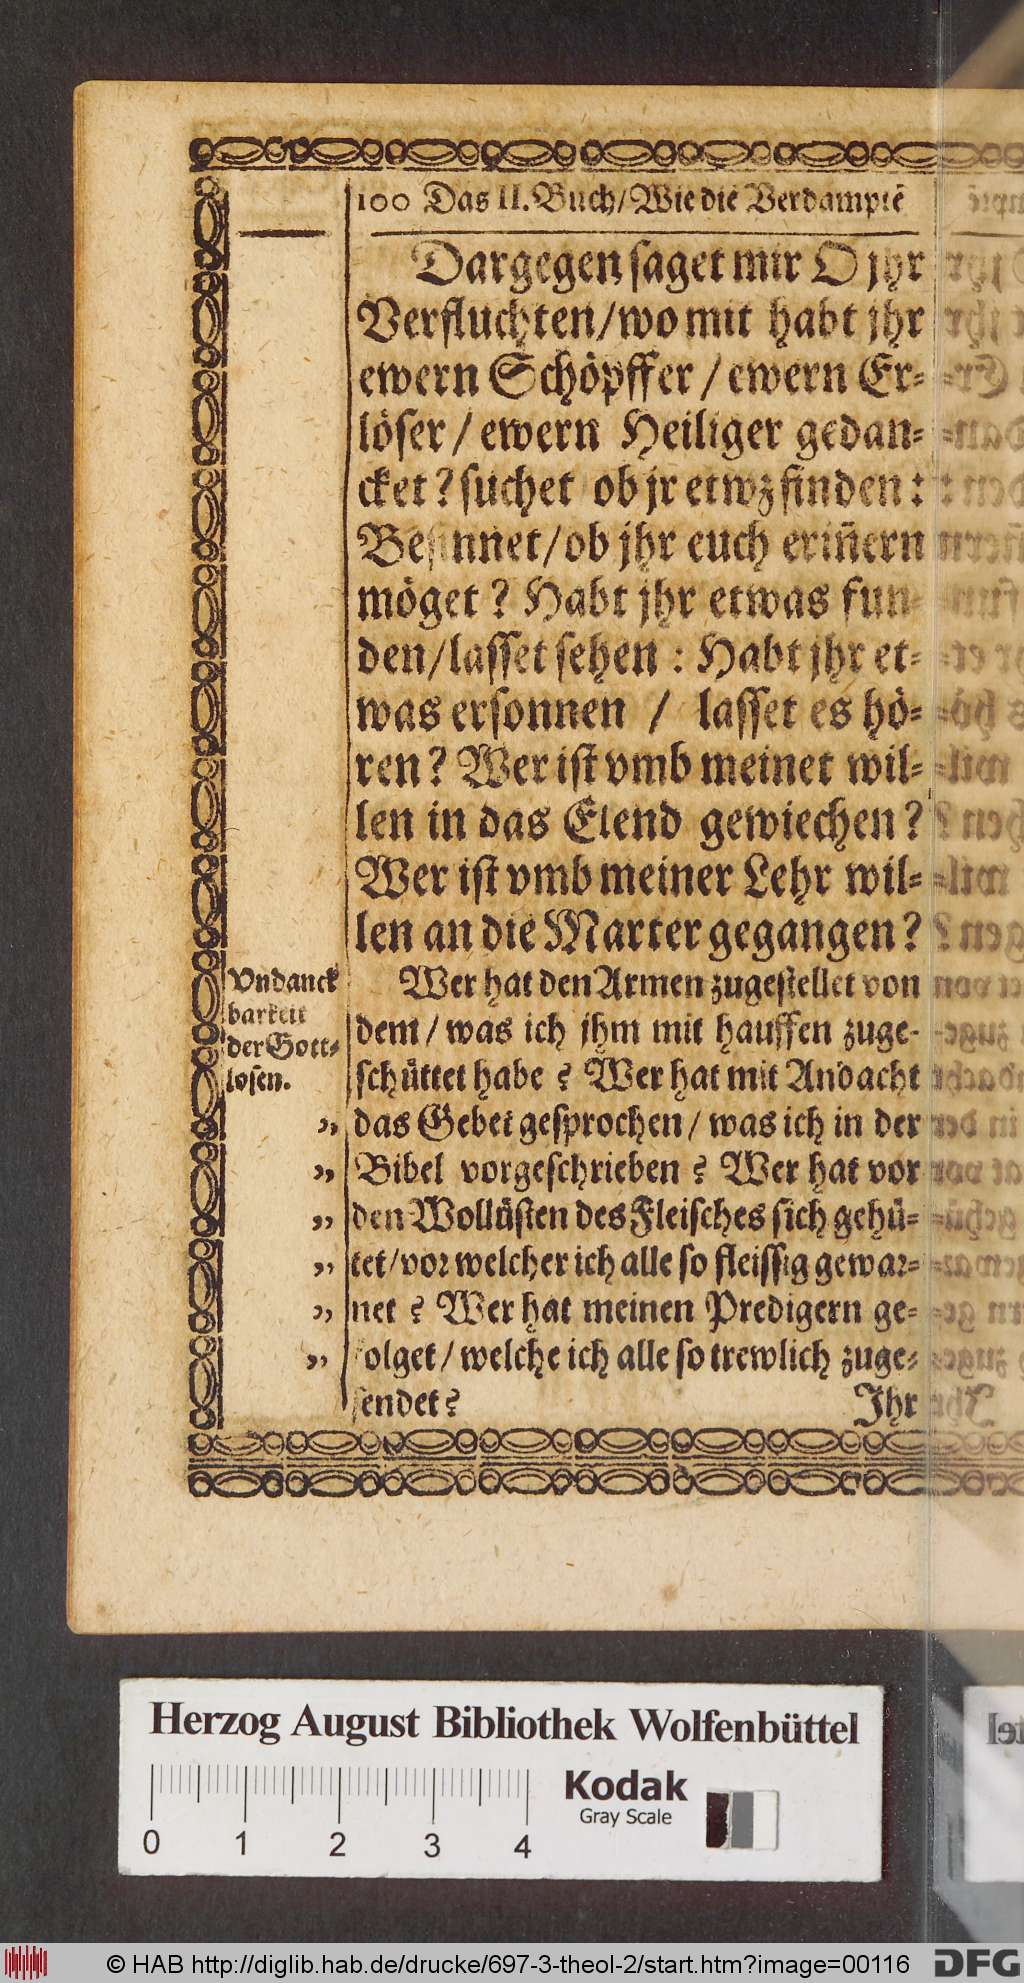 100 Das II. Buch/Wie die Verdamptē
Dargegen saget mir O jhr
Verfluchten/wo mit habt jhr
ewern Schöpffer / ewern Er⸗
löser / ewern Heiliger gedan⸗
cket? suchet ob jr etwz finden:
Besinnet/ob jhr euch eriñern
möget? Habt jhr etwas fun⸗
den/lasset sehen : Habt jhr et⸗
was ersonnen / lasset es hö⸗
ren? Wer ist vmb meinet wil⸗
len in das Elend gewiechen?
Wer ist vmb meiner Lehr wil⸗
len an die Marter gegangen?
Vndanck
barkeit
der Gott⸗
losen.
Wer hat den Armen zugestellet von
dem / was ich jhm mit hauffen zuge⸗
schüttet habe? Wer hat mit Andacht
„ das Gebet gesprochen / was ich in der
„ Bibel vorgeschrieben? Wer hat vor
„ den Wollüsten des Fleisches sich gehü⸗
„ tet/vor welcher ich alle so fleissig gewar⸗
„ net? Wer hat meinen Predigern ge⸗
„ folget / welche ich alle so trewlich zuge⸗
sendet?
Jhr
Herzog August Bibliothek Wolfenbüttel
Kodak
Gray Scale
0 1 2 3 4
© HAB http://diglib.hab.de/drucke/697-3-theol-2/start.htm?image=00116
DFG